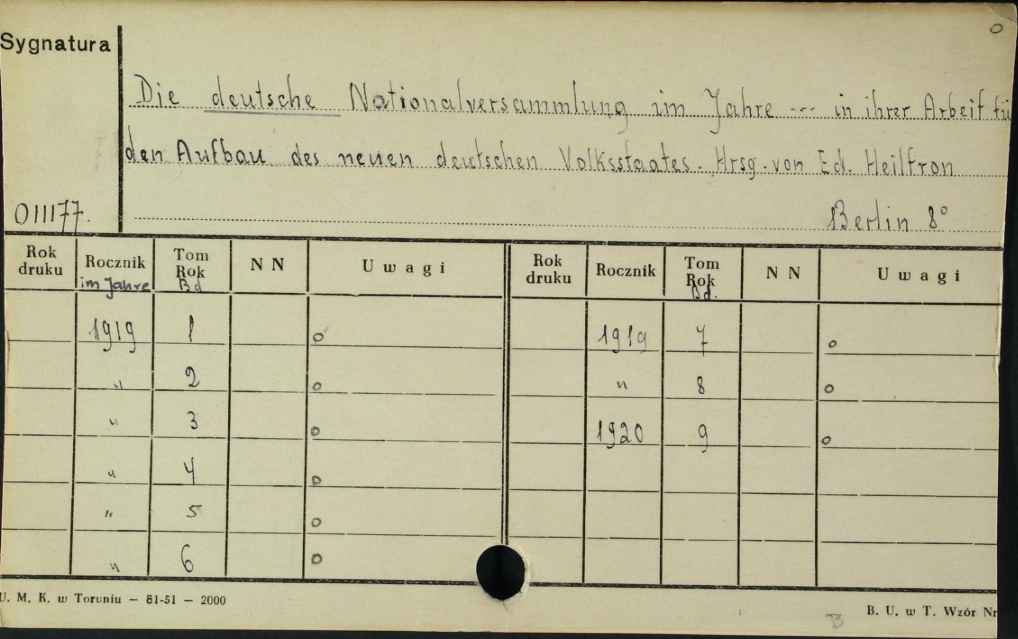 o
Sygnatura
Die deutsche Nationalversammlung im Jahre --- in ihrer Arbeit fü
den Aufbau des neuen deutschen Volksstaates. Hrsg. von Ed. Heilfron
011177. Berlin 8°
Rok druku Rocznik im Jahre Tom Rok Bd N N Uwagi Rok druku Rocznik Tom Rok Bd. N N Uwagi
1919 1 o 1919 7 o
" 2 o " 8 o
" 3 o 1920 9 o
" 4 o
" 5 o
" 6 o
U. M. K. w Toruniu — 81-51 — 2000
B. U. w T. Wzór Nr
B